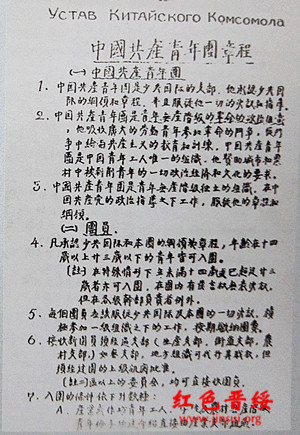 Устав Китайского Комсомола
中國共產青年團章程
(一) 中國共產青年團
1、中國共產青年團是少共國際的支部，他承認少共國際的綱領和章程，並且服從他一切的決議和指導。
2、中國共產青年團是青年無產階級的革命的政治組織，他吸收廣大的勞動青年參加革命的鬥爭，在鬥爭中給與共產主義的教育和訓練。中國共產青年團是中國青年工人唯一的組織，他幫助城市和鄉村中被剝削青年的一切政治經濟和文化的要求。
3、中國共產青年團是青年無產階級獨立的組織，在中國共產黨的政治指導之下工作，服從他的章程和綱領。
(二) 團員
4、凡承認少共國際和本團的綱領與章程，年齡在十四歲以上廿三歲以下的青年皆可入團。
(註) 在特殊情形下，未滿十四歲或已超廿三歲者亦可入團，在團內有發言權無表決權，但在各級幹部負責者例外。
5、每個團員應該服從少共國際及本團的一切決議，積極參加一級組織之下的工作，按期繳納團費。
6、接收新團員須經過支部(生產支部，街道支部，農村支部。)如無支部，地方組織可代行其職權，但須經該團的上級機關批准。
(註二) 區以上的委員會，均可直接收團員。
7、入團的條件依下列數種
红色晋绥